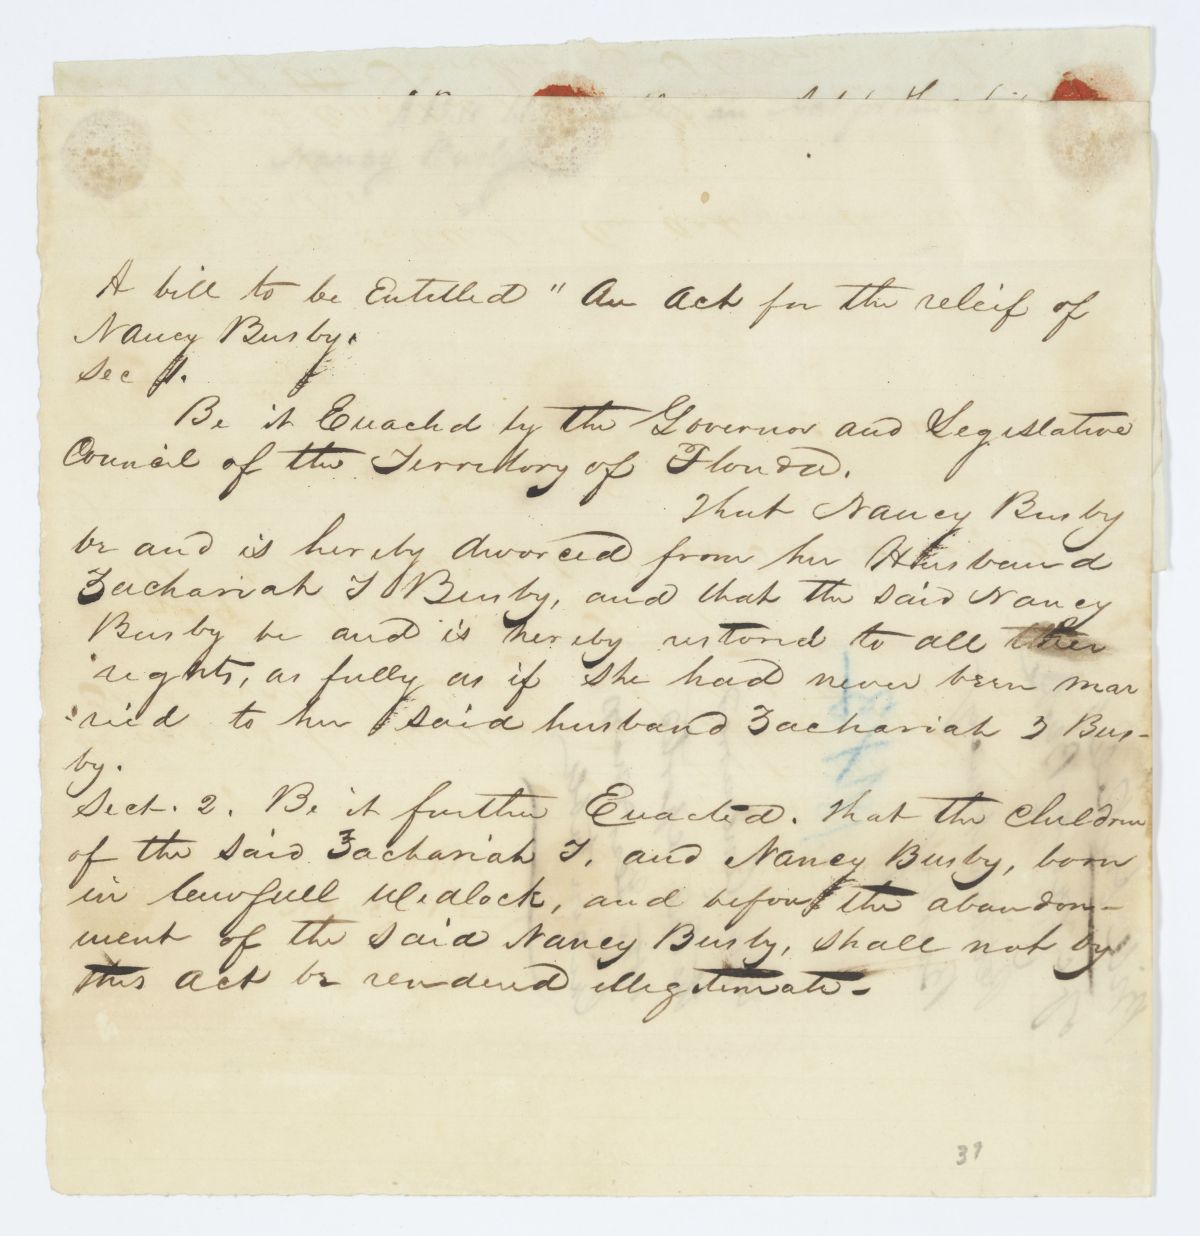 A bill to be Entitled "An Act for the releif of
Nancy Busby.
Sec 1.
Be it Enacted by the Governor and Legislative
Council of the Territory of Florida.
That Nancy Busby
be and is hereby divorced from her Husband
Zachariah T Busby, and that the said Nancy
Busby be and is hereby restored to all her
rights, as fully as if She had never been mar
ried to her said husband Zachariah T Bus-
by.
Sect. 2. Be it further Enacted. That the Children
of the said Zachariah T. and Nancy Busby, born
in lawfull Wedlock, and before the abandon-
ment of the said Nancy Busby, shall not by
this Act be rendered illegitimate-
37